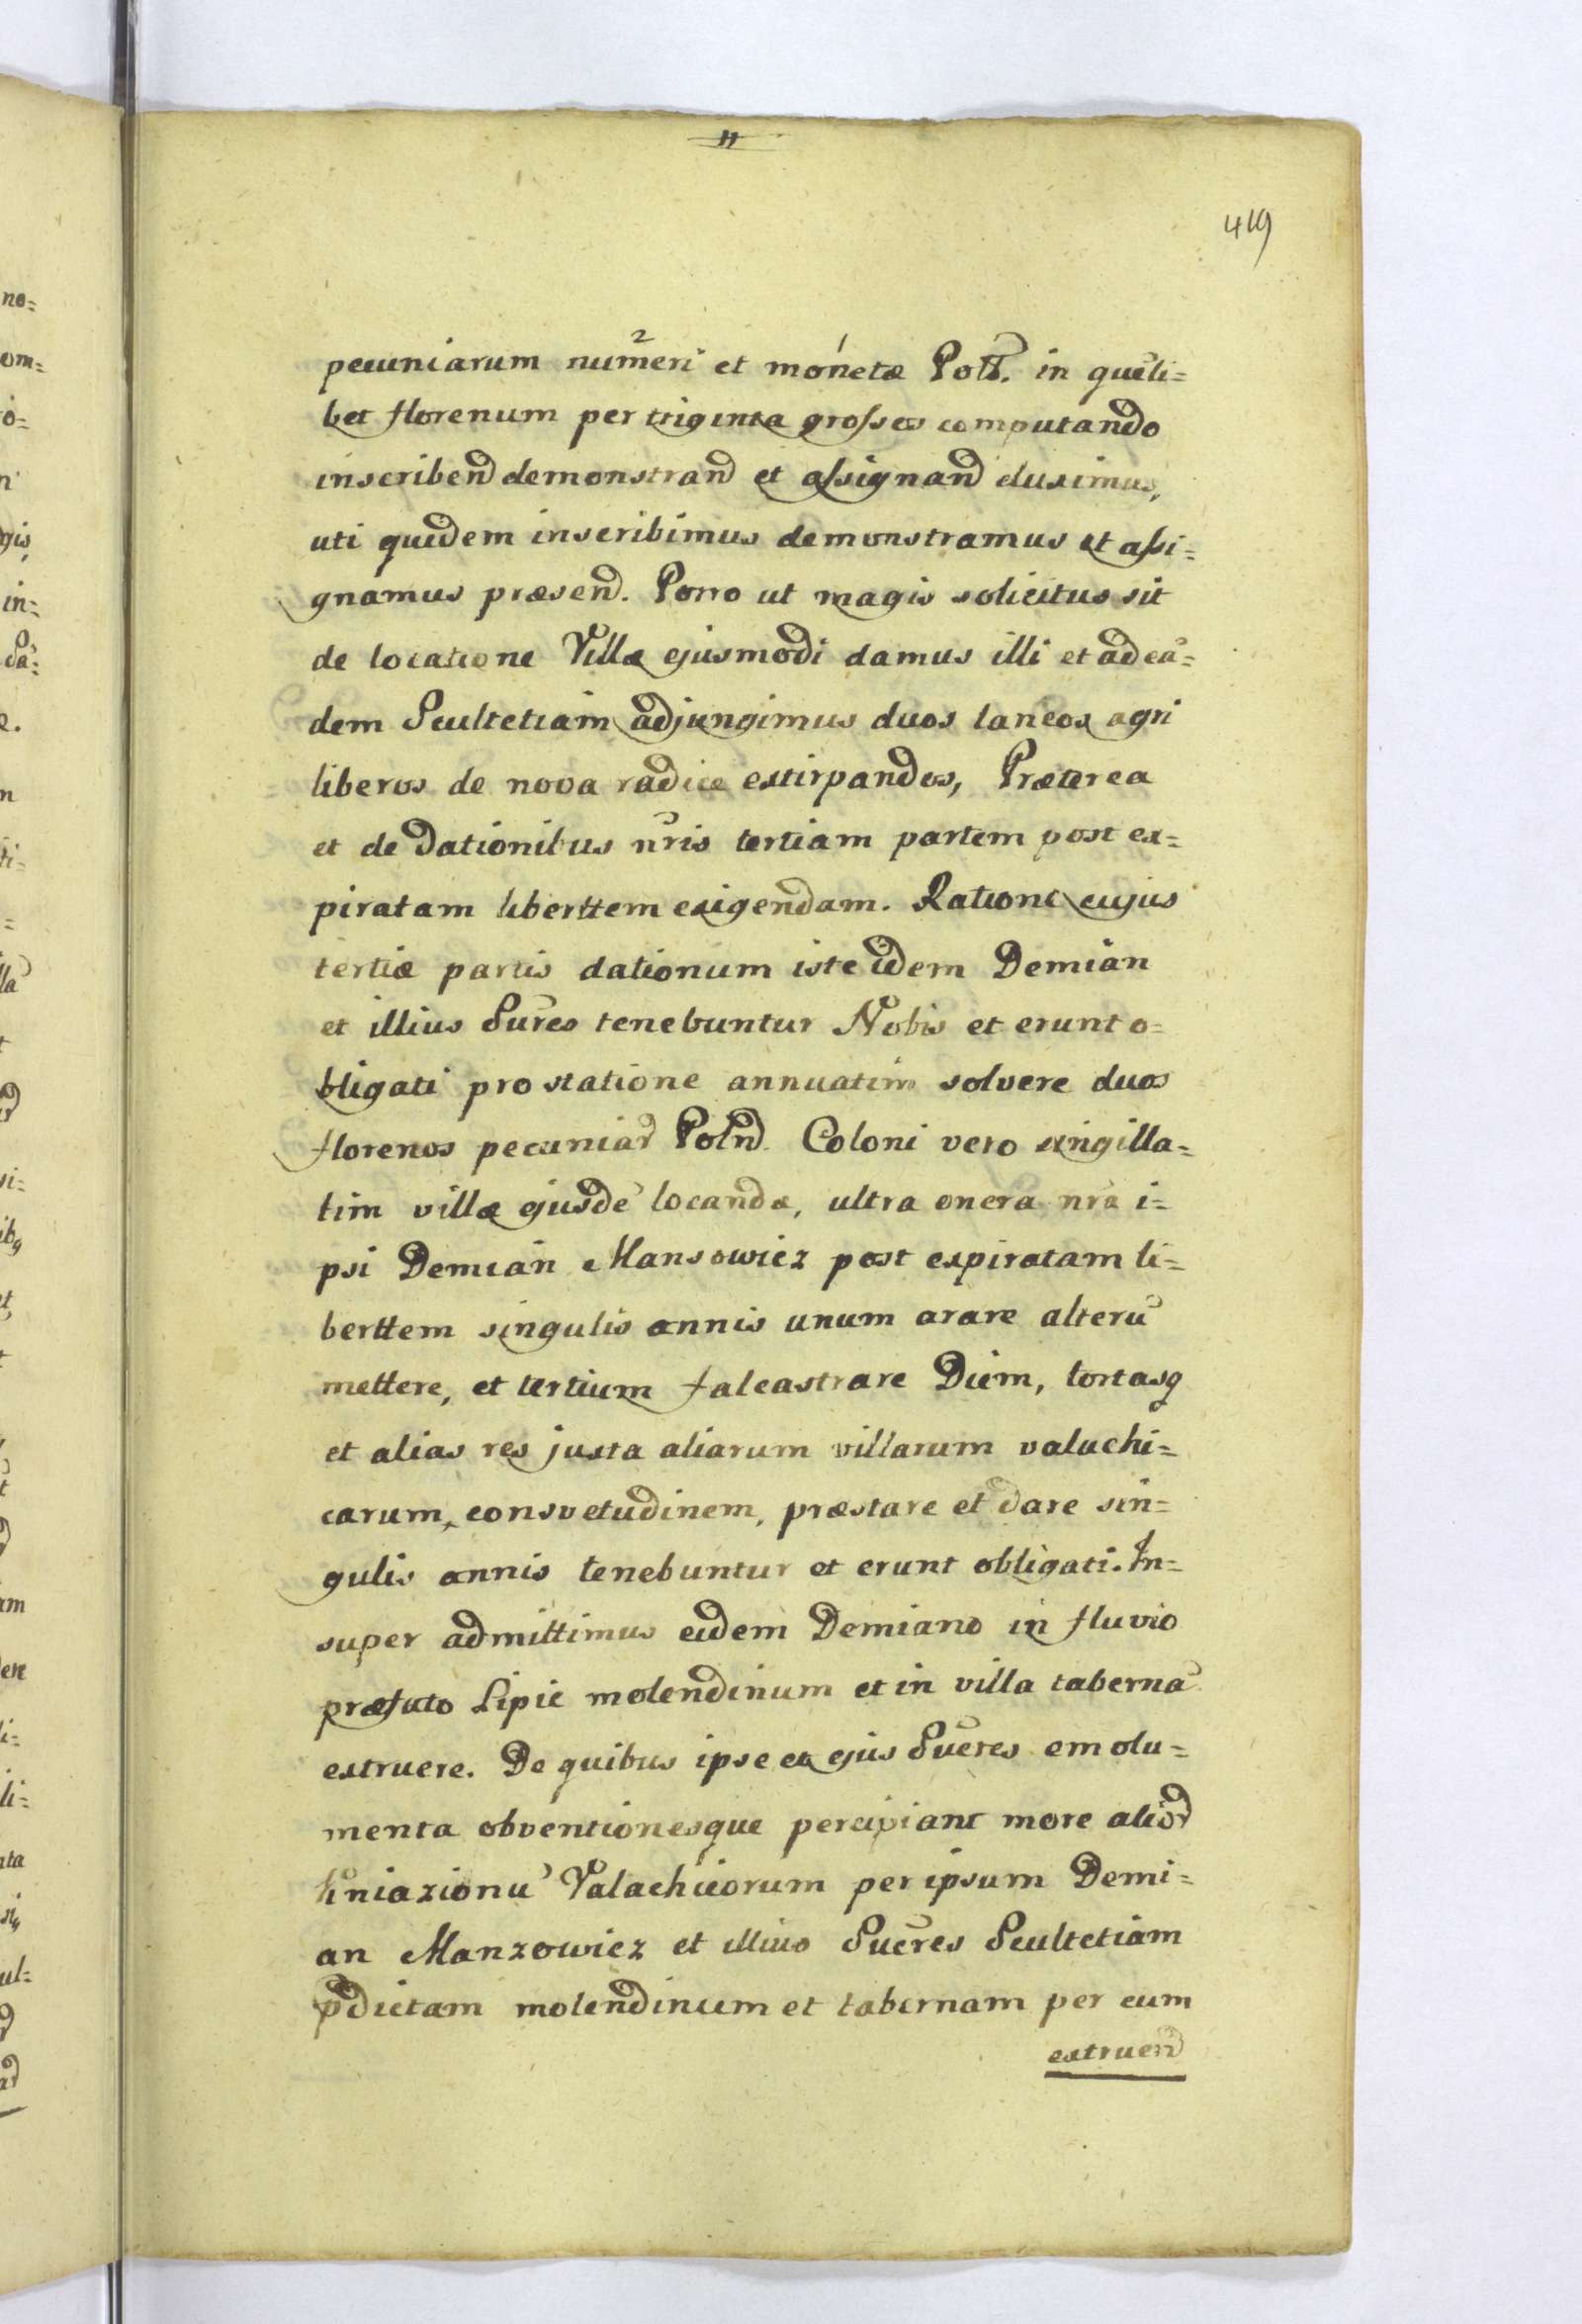 419
pecuniarum numeri et monetæ Poll. in queli=
bet florenum per triginta grosses computando
inscribend demonstrand et assignand duximus,
uti quidem inscribimus demonstramus et assi=
gnamus præsend. Porro ut magis solicitus sit
de locatione Villæ ejusmodi damus illi et ad eā=
dem Scultetiam adjungimus duos laneos agri
liberos de nova radice extirpandos, Præterea
et de dationibus nris tertiam partem post ex=
piratam liberttem exigendam. Ratione cujus
tertiæ partis dationum iste idem Demian
et illius Sures tenebuntur Nobis et erunt o=
bligati pro statione annuatim solvere duos
florenos pecuniar Polnd. Coloni vero singilla=
tim villæ ejusdē locandæ, ultra onera nra i=
psi Demian Mansowicz post expiratam li=
berttem singulis annis unum arare alterū
mettere, et tertium falcastrare Diem, tortasq
et alias res juxta aliarum villarum valachi=
carum, consvetudinem, præstare et dare sin=
gulis annis tenebuntur et erunt obligati. In=
super admittimus eidem Demiano in fluvio
præfato Lipie molendinum et in villa tabernā
extruere. De quibus ipse et ejus Sueres emolu=
menta obventionesque percipiant more alior
Kniazionū Valachicorum per ipsum Demi=
an Manzowicz et illius Sueres Scultetiam
pdictam molendinum et tabernam per eum
extruend
ne=
om=
in=